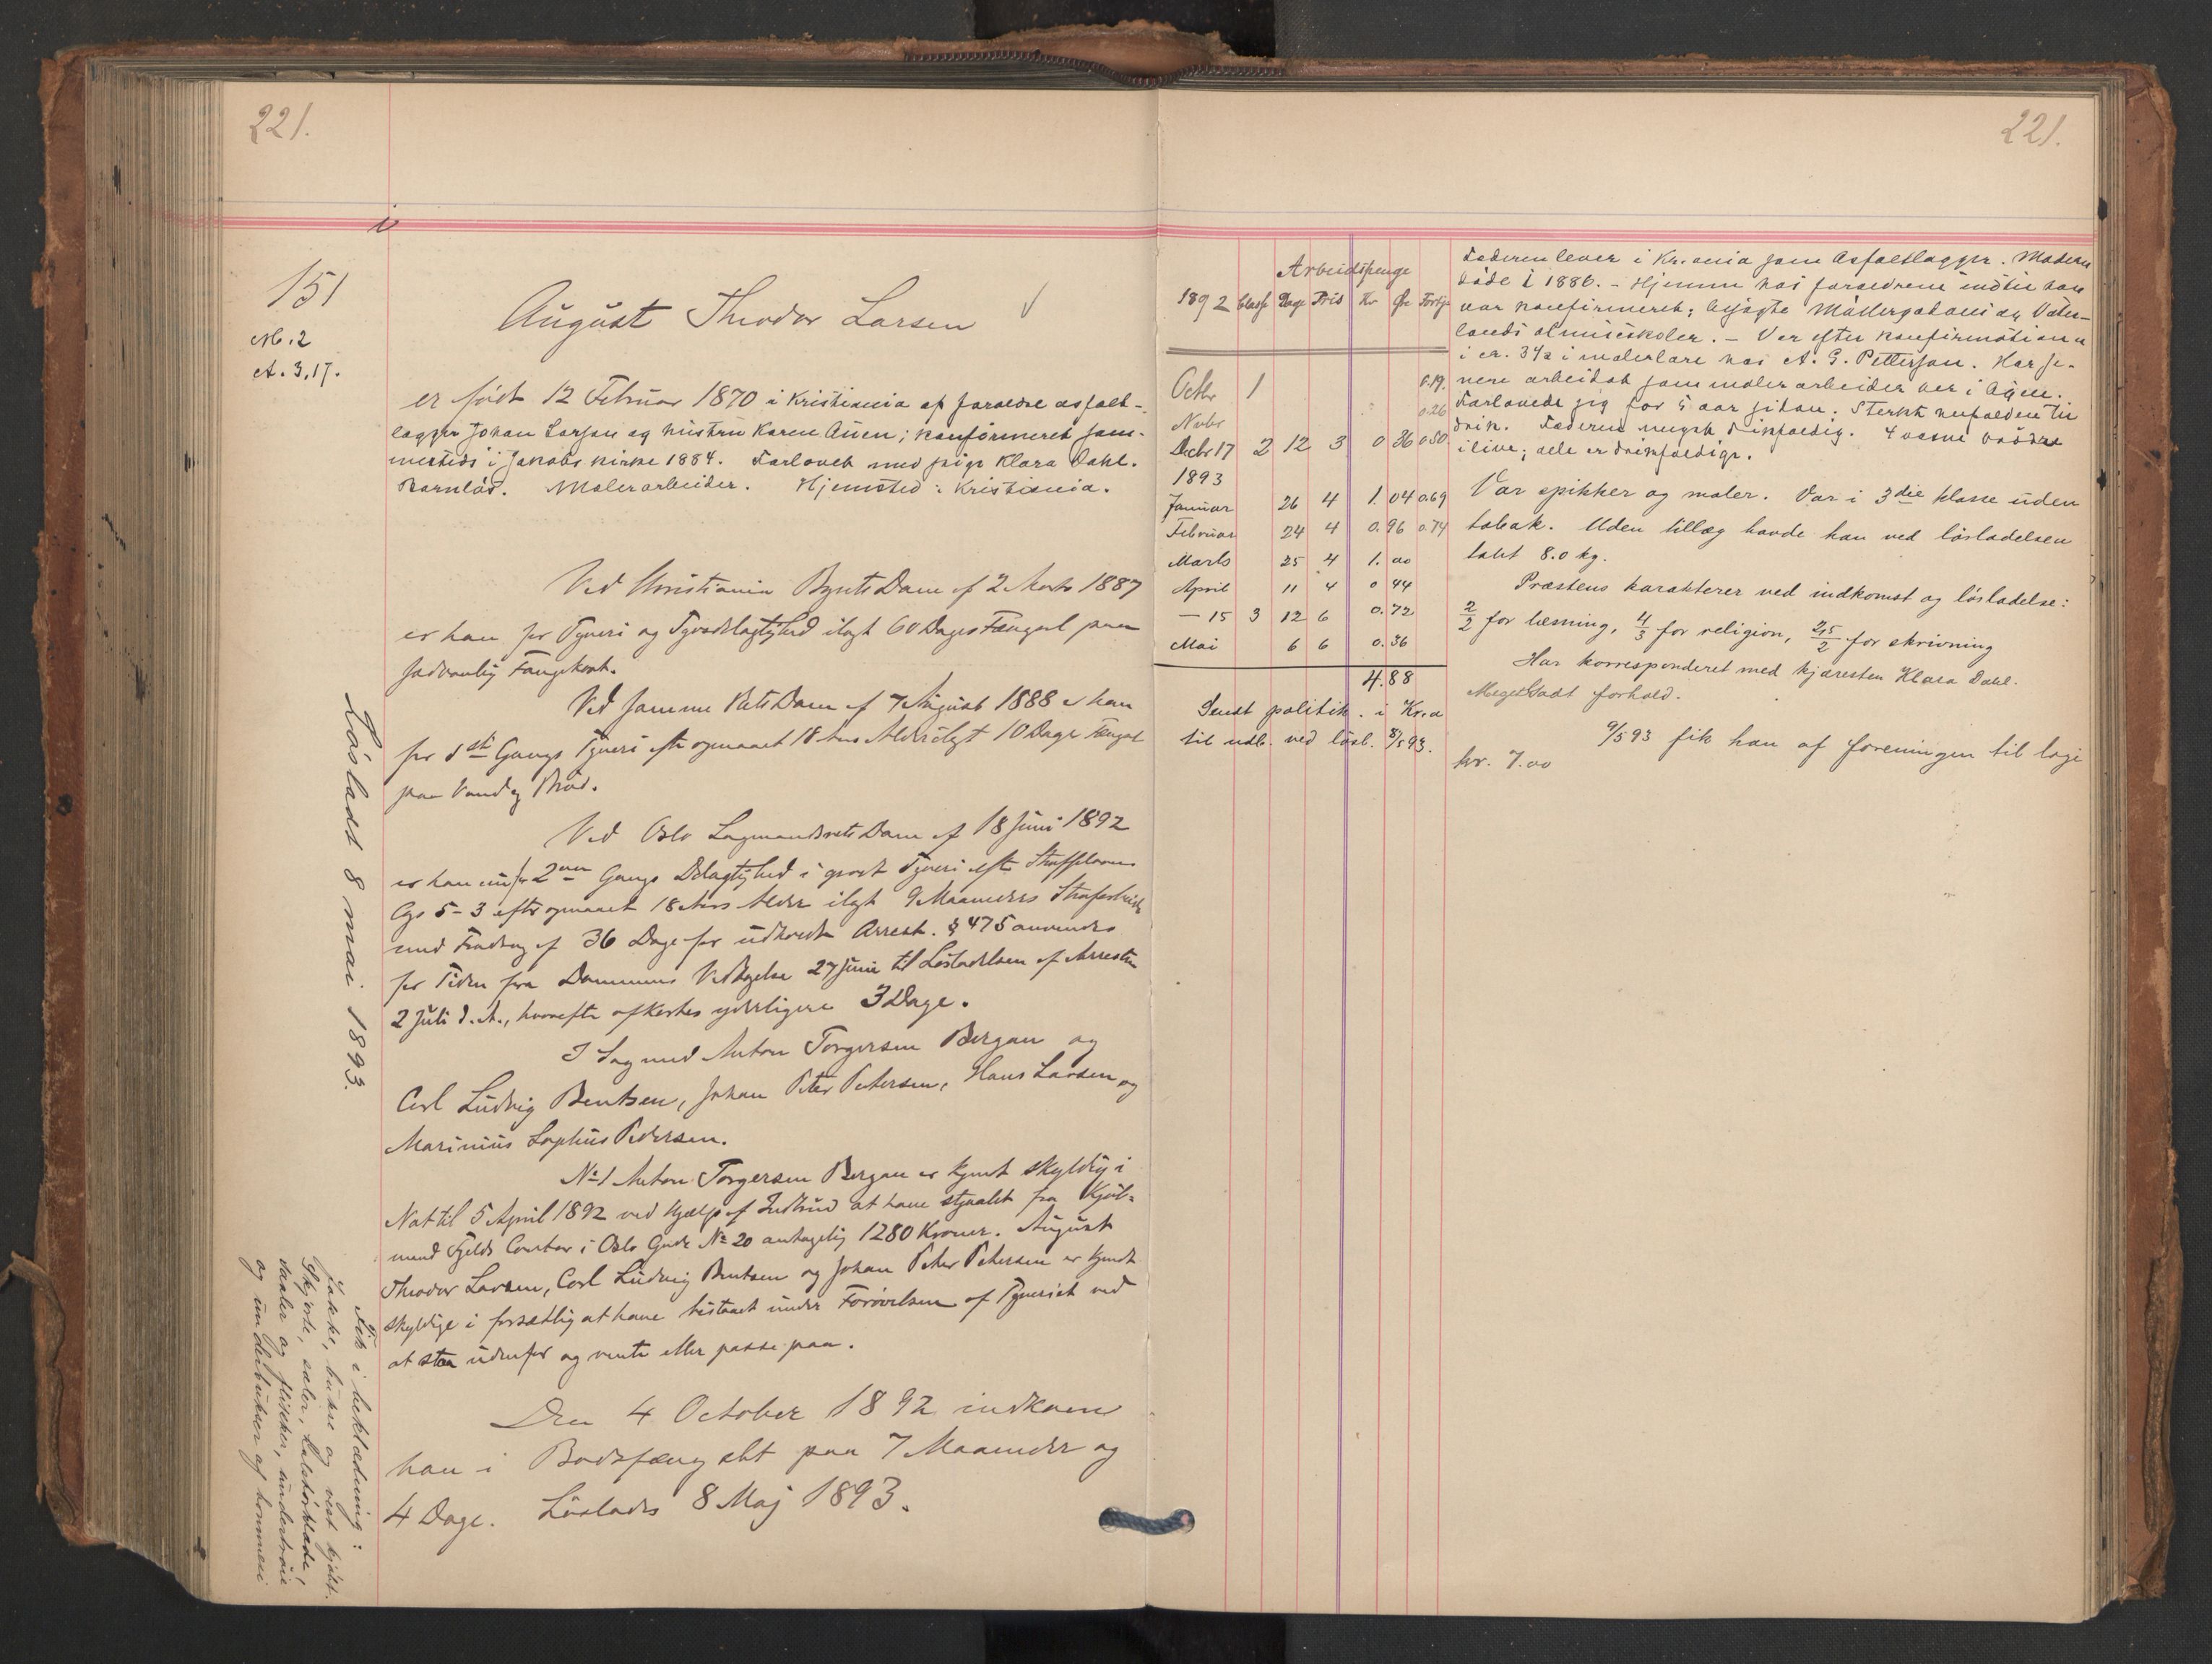 221.
i
151
M. 2
A. 3, 17.
August Theodor Larsen
er født 12 Februar 1870 i Kristiania af foraeldre asfalt-
lægger Johan Larsen og hustru Karen Auen; konfirmeret sam-
mesteds i Jakobs kirke 1884. Forlovet med pige Klara Dahl.
Barnløs. Malerarbeider. Hjemsted: Kristiania.
Ved Christiania Byrets Dom af 2 Marts 1887
er han for Tyveri og Tyvsdelagtighed ilagt 60 Dages Fængsel paa
sædvanlig Fangekost.
Ved samme Rets Dom af 7 August 1888 er han
for 1ste Gangs Tyveri efter opnaaet 18 Aars Alder ilagt 10 Dage Fængsel
paa Vand og Brød.
Ved Oslo Lagmandsrets Dom af 18 Juni 1892
er han nu for 2den Gangs Delagtighed i grovt Tyveri efter Straffelovens
Cap 5-3 efter opnaaet 18 Aars Alder ilagt 9 Maaneders Strafarbeide
med Fradrag af 36 Dage for udholdt Arrest. § 475 anvendes
for Tiden fra Dommens Vedtagelse 27 Juni til Løsladelsen af Arresten
2 Juli d. A., hvorefter afkortes yderligere 3 Dage.
I Sag med Anton Torgersen Bergan og
Carl Ludvig Bentsen, Johan Peter Petersen, Hans Larsen og
Marinius Sophus Pedersen.
No 1 Anton Torgersen Bergan er kjendt skyldig i
Nat til 5 April 1892 ved Hjælp af Indbrud at have stjaalet fra Kjøb-
mand Fjelds Contor i Oslo Gade No 20 antagelig 1280 Kroner. August
Theodor Larsen, Carl Ludvig Bentsen og Johan Peter Petersen er kjendt
skyldige i forsætlig at have bistaaet under Forøvelsen af Tyveriet ved
at staa udenfor og vente eller passe paa.
Den 4 October 1892 indkom
han i Bodsfængslet paa 7 Maaneder og
4 Dage. Løslades 8 Maj 1893.
Løsladt 8 mai 1893.
Fik i beklædning:
Jakke, bukse og vest kjøbt.
Skjorte, seler, halstørklæde,
saaler og flikker, undertrøie
og underbukser af kommuni
221.
Arbeidspenge
1892 Classe Dage Pris Kr Øre Fortj.
Octbr 1 0.19.
Novbr 0.26
Decbr 17 2 12 3 0 36 0.50
1893
Januar 26 4 1. 04 0.69
Februar 24 4 0. 96 0.74
Marts 25 4 1. 00
April 11 4 0 44
— 15 3 12 6 0. 72
Mai 6 6 0. 36
4.88
Sendt politik. i Kr.a
til udb. ved løsl. 8/5 93.
Faderen lever i Kr.ania som Asfaltlægger. Moderen
døde i 1886. - Hjemme hos foraeldrene indtil han
var konfirmeret; besøgte Møllergadens og Vater-
lands almueskoler. - Var efter konfirmationen
i ca. 3 1/2 i malerlære hos A. G. Pettersen. Har se-
nere arbeidet som malerarbeider her i byen.
Forlovede sig for 5 aar siden. Sterkt henfalden til
drik. Faderen meget drikfældig. 4 voxne brødre
ilive; alle er drikfældige.
Var spikker og maler. Var i 3die klasse uden
tobak. Uden tillæg havde han ved løsladelsen
tabt 8.0 kg.
Præstens karakterer ved indkomst og løsladelse:
2/2 for læsning, 4/3 for religion, 2,5/2 for skrivning
Har korresponderet med kjæresten Klara Dahl.
Meget godt forhold.
9/5 93 fik han af foreningen til logi
kr. 7.00